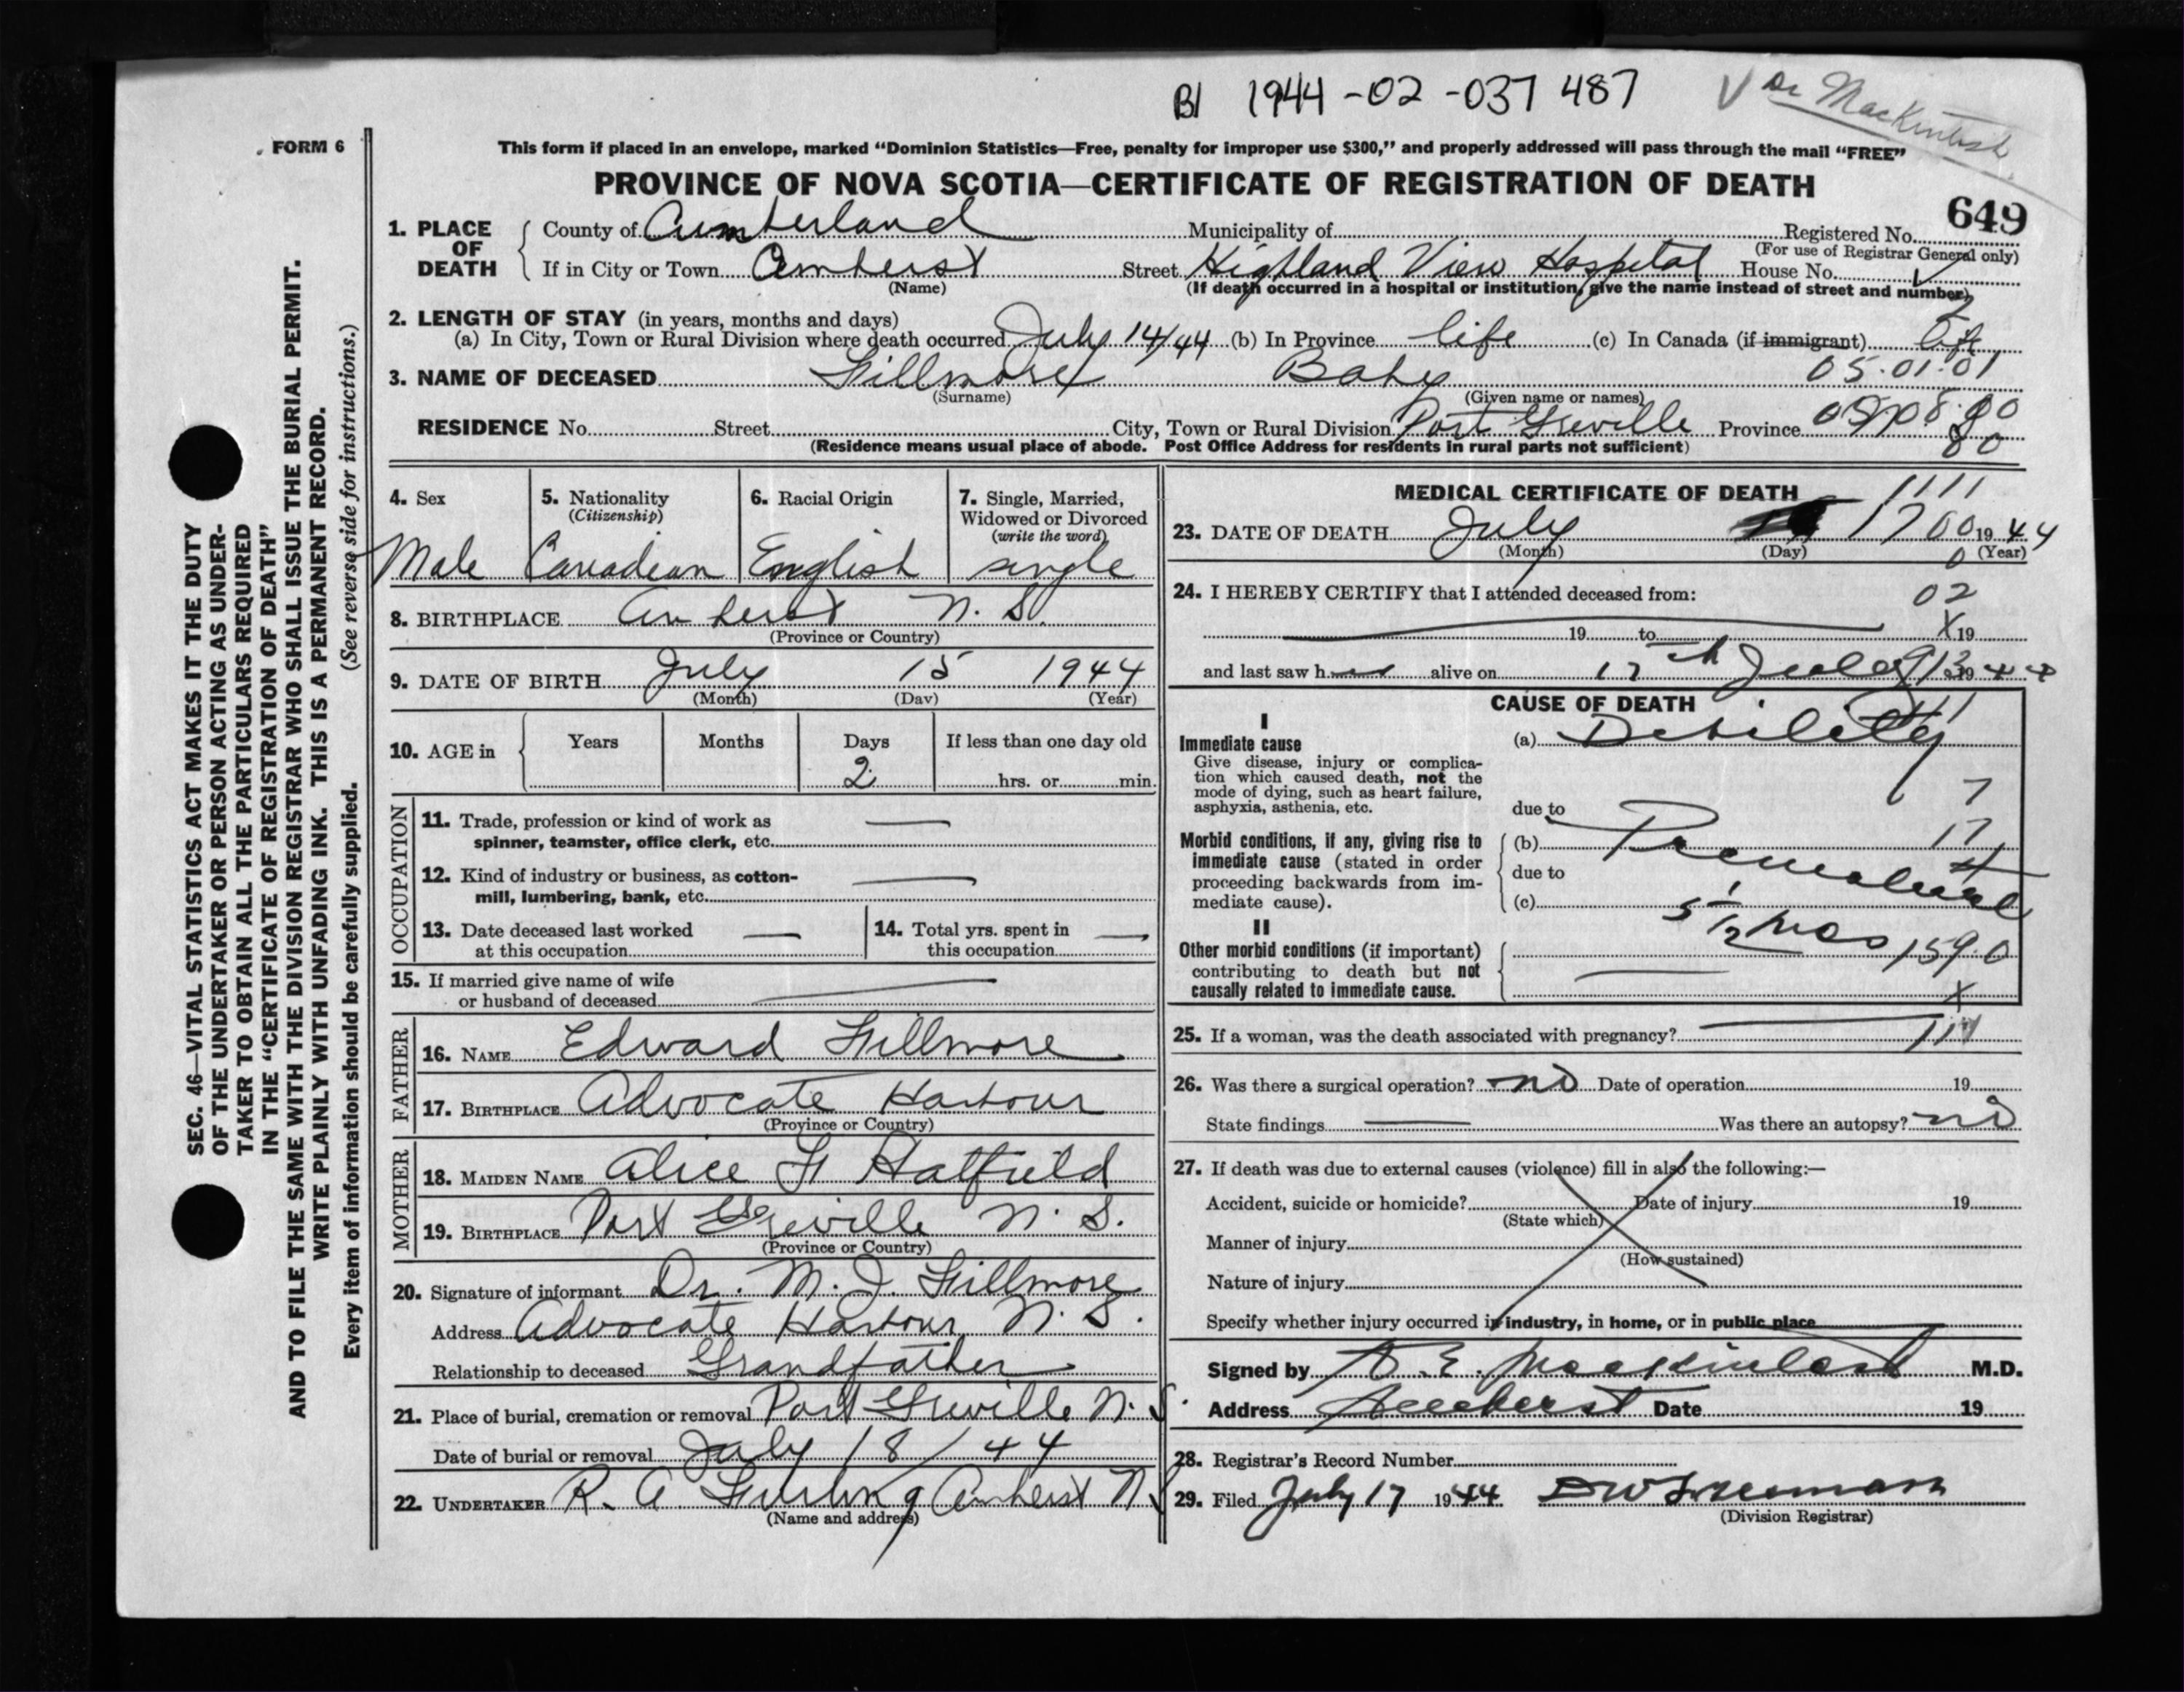 BI 1944-02-037487
√ Dr MacKintosh
FORM 6
This form if placed in an envelope, marked "Dominion Statistics—Free, penalty for improper use $300," and properly addressed will pass through the mail "FREE"
PROVINCE OF NOVA SCOTIA—CERTIFICATE OF REGISTRATION OF DEATH
649
1. PLACE OF DEATH County of Cumberland Municipality of Registered No.
(For use of Registrar General only)
If in City or Town Amherst Street Highland View Hospital House No.
(Name) (If death occurred in a hospital or institution, give the name instead of street and number)
2. LENGTH OF STAY (in years, months and days)
(a) In City, Town or Rural Division where death occurred July 14/44 (b) In Province life (c) In Canada (if immigrant) life
3. NAME OF DECEASED Fillmore Baby 05.01.01
(Surname) (Given name or names)
RESIDENCE No. Street City, Town or Rural Division Port Greville Province
(Residence means usual place of abode. Post Office Address for residents in rural parts not sufficient) 80
SEC. 46—VITAL STATISTICS ACT MAKES IT THE DUTY
OF THE UNDERTAKER OR PERSON ACTING AS UNDER-
TAKER TO OBTAIN ALL THE PARTICULARS REQUIRED
IN THE "CERTIFICATE OF REGISTRATION OF DEATH"
AND TO FILE THE SAME WITH THE DIVISION REGISTRAR WHO SHALL ISSUE THE BURIAL PERMIT.
WRITE PLAINLY WITH UNFADING INK. THIS IS A PERMANENT RECORD.
Every item of information should be carefully supplied. (See reverse side for instructions.)
4. Sex 5. Nationality 6. Racial Origin 7. Single, Married,
(Citizenship) Widowed or Divorced
(write the word)
Male Canadian English single
8. BIRTHPLACE Amherst N. S.
(Province or Country)
9. DATE OF BIRTH July 15 1944
(Month) (Day) (Year)
10. AGE in Years Months Days If less than one day old
2 hrs. or min.
OCCUPATION
11. Trade, profession or kind of work as
spinner, teamster, office clerk, etc.
12. Kind of industry or business, as cotton-
mill, lumbering, bank, etc.
13. Date deceased last worked 14. Total yrs. spent in
at this occupation this occupation
15. If married give name of wife
or husband of deceased
FATHER
16. NAME Edward Fillmore
17. BIRTHPLACE Advocate Harbour
(Province or Country)
MOTHER
18. MAIDEN NAME Alice F Hatfield
19. BIRTHPLACE Port Greville N. S.
(Province or Country)
20. Signature of informant Dr. M. J. Fillmore
Address Advocate Harbour N. S.
Relationship to deceased Grandfather
21. Place of burial, cremation or removal Port Greville N. S.
Date of burial or removal July 18/44
22. UNDERTAKER R. A. Amherst N S
(Name and address)
MEDICAL CERTIFICATE OF DEATH 1111
23. DATE OF DEATH July 17 00 1944
(Month) (Day) (Year)
24. I HEREBY CERTIFY that I attended deceased from: 02
19 to X 19
and last saw h alive on 17th July 1944
CAUSE OF DEATH
I
Immediate cause
Give disease, injury or complica-
tion which caused death, not the
mode of dying, such as heart failure,
asphyxia, asthenia, etc.
(a) Debility
due to 7
Morbid conditions, if any, giving rise to
immediate cause (stated in order
proceeding backwards from im-
mediate cause).
(b) Premature 17
due to
(c) 5 1/2 mos
II
Other morbid conditions (if important)
contributing to death but not
causally related to immediate cause.
159.0
X
25. If a woman, was the death associated with pregnancy?
26. Was there a surgical operation? no Date of operation 19
State findings Was there an autopsy? no
27. If death was due to external causes (violence) fill in also the following:—
Accident, suicide or homicide? Date of injury 19
(State which)
Manner of injury
(How sustained)
Nature of injury
Specify whether injury occurred in industry, in home, or in public place
Signed by MacKintosh M.D.
Address Amherst Date 19
28. Registrar's Record Number
29. Filed July 17 1944
(Division Registrar)